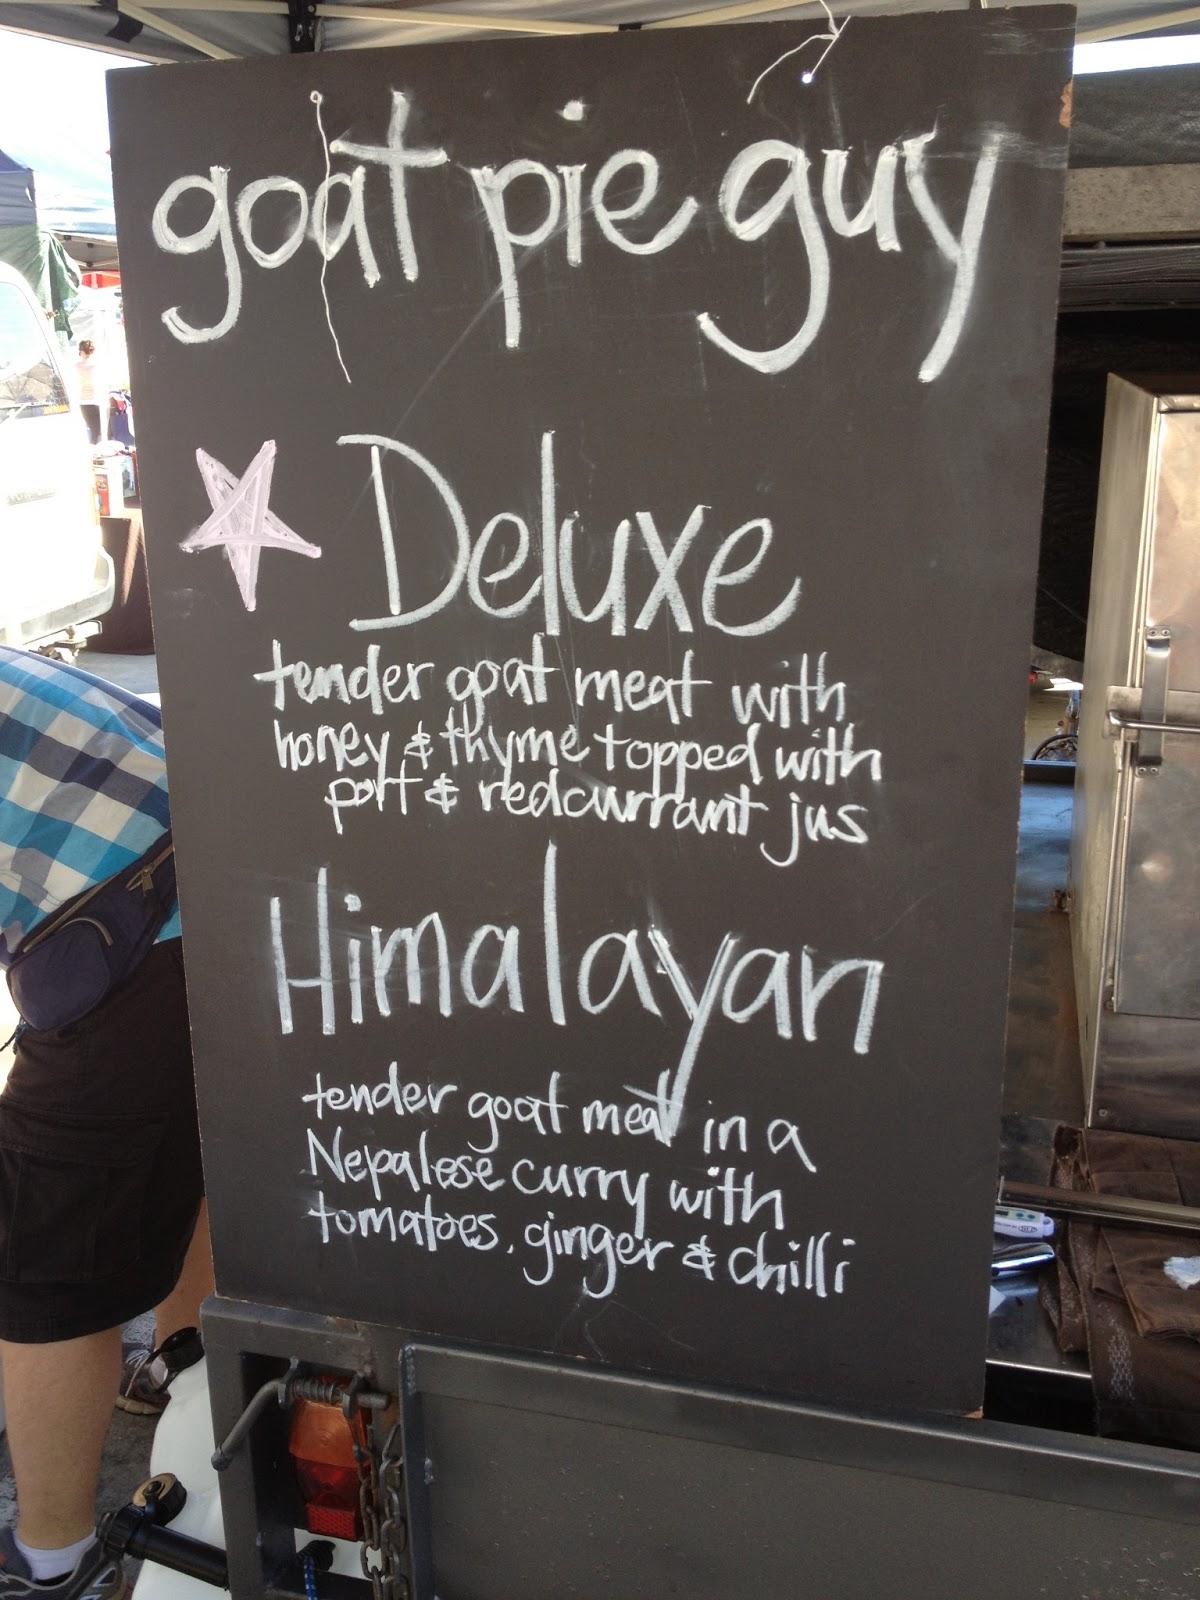 goat pie guy
Deluxe
tender goat meat with
honey & thyme topped with
port & redcurrant jus
Himalayan
tender goat meat in a
Nepalese curry with
tomatoes, ginger & chilli